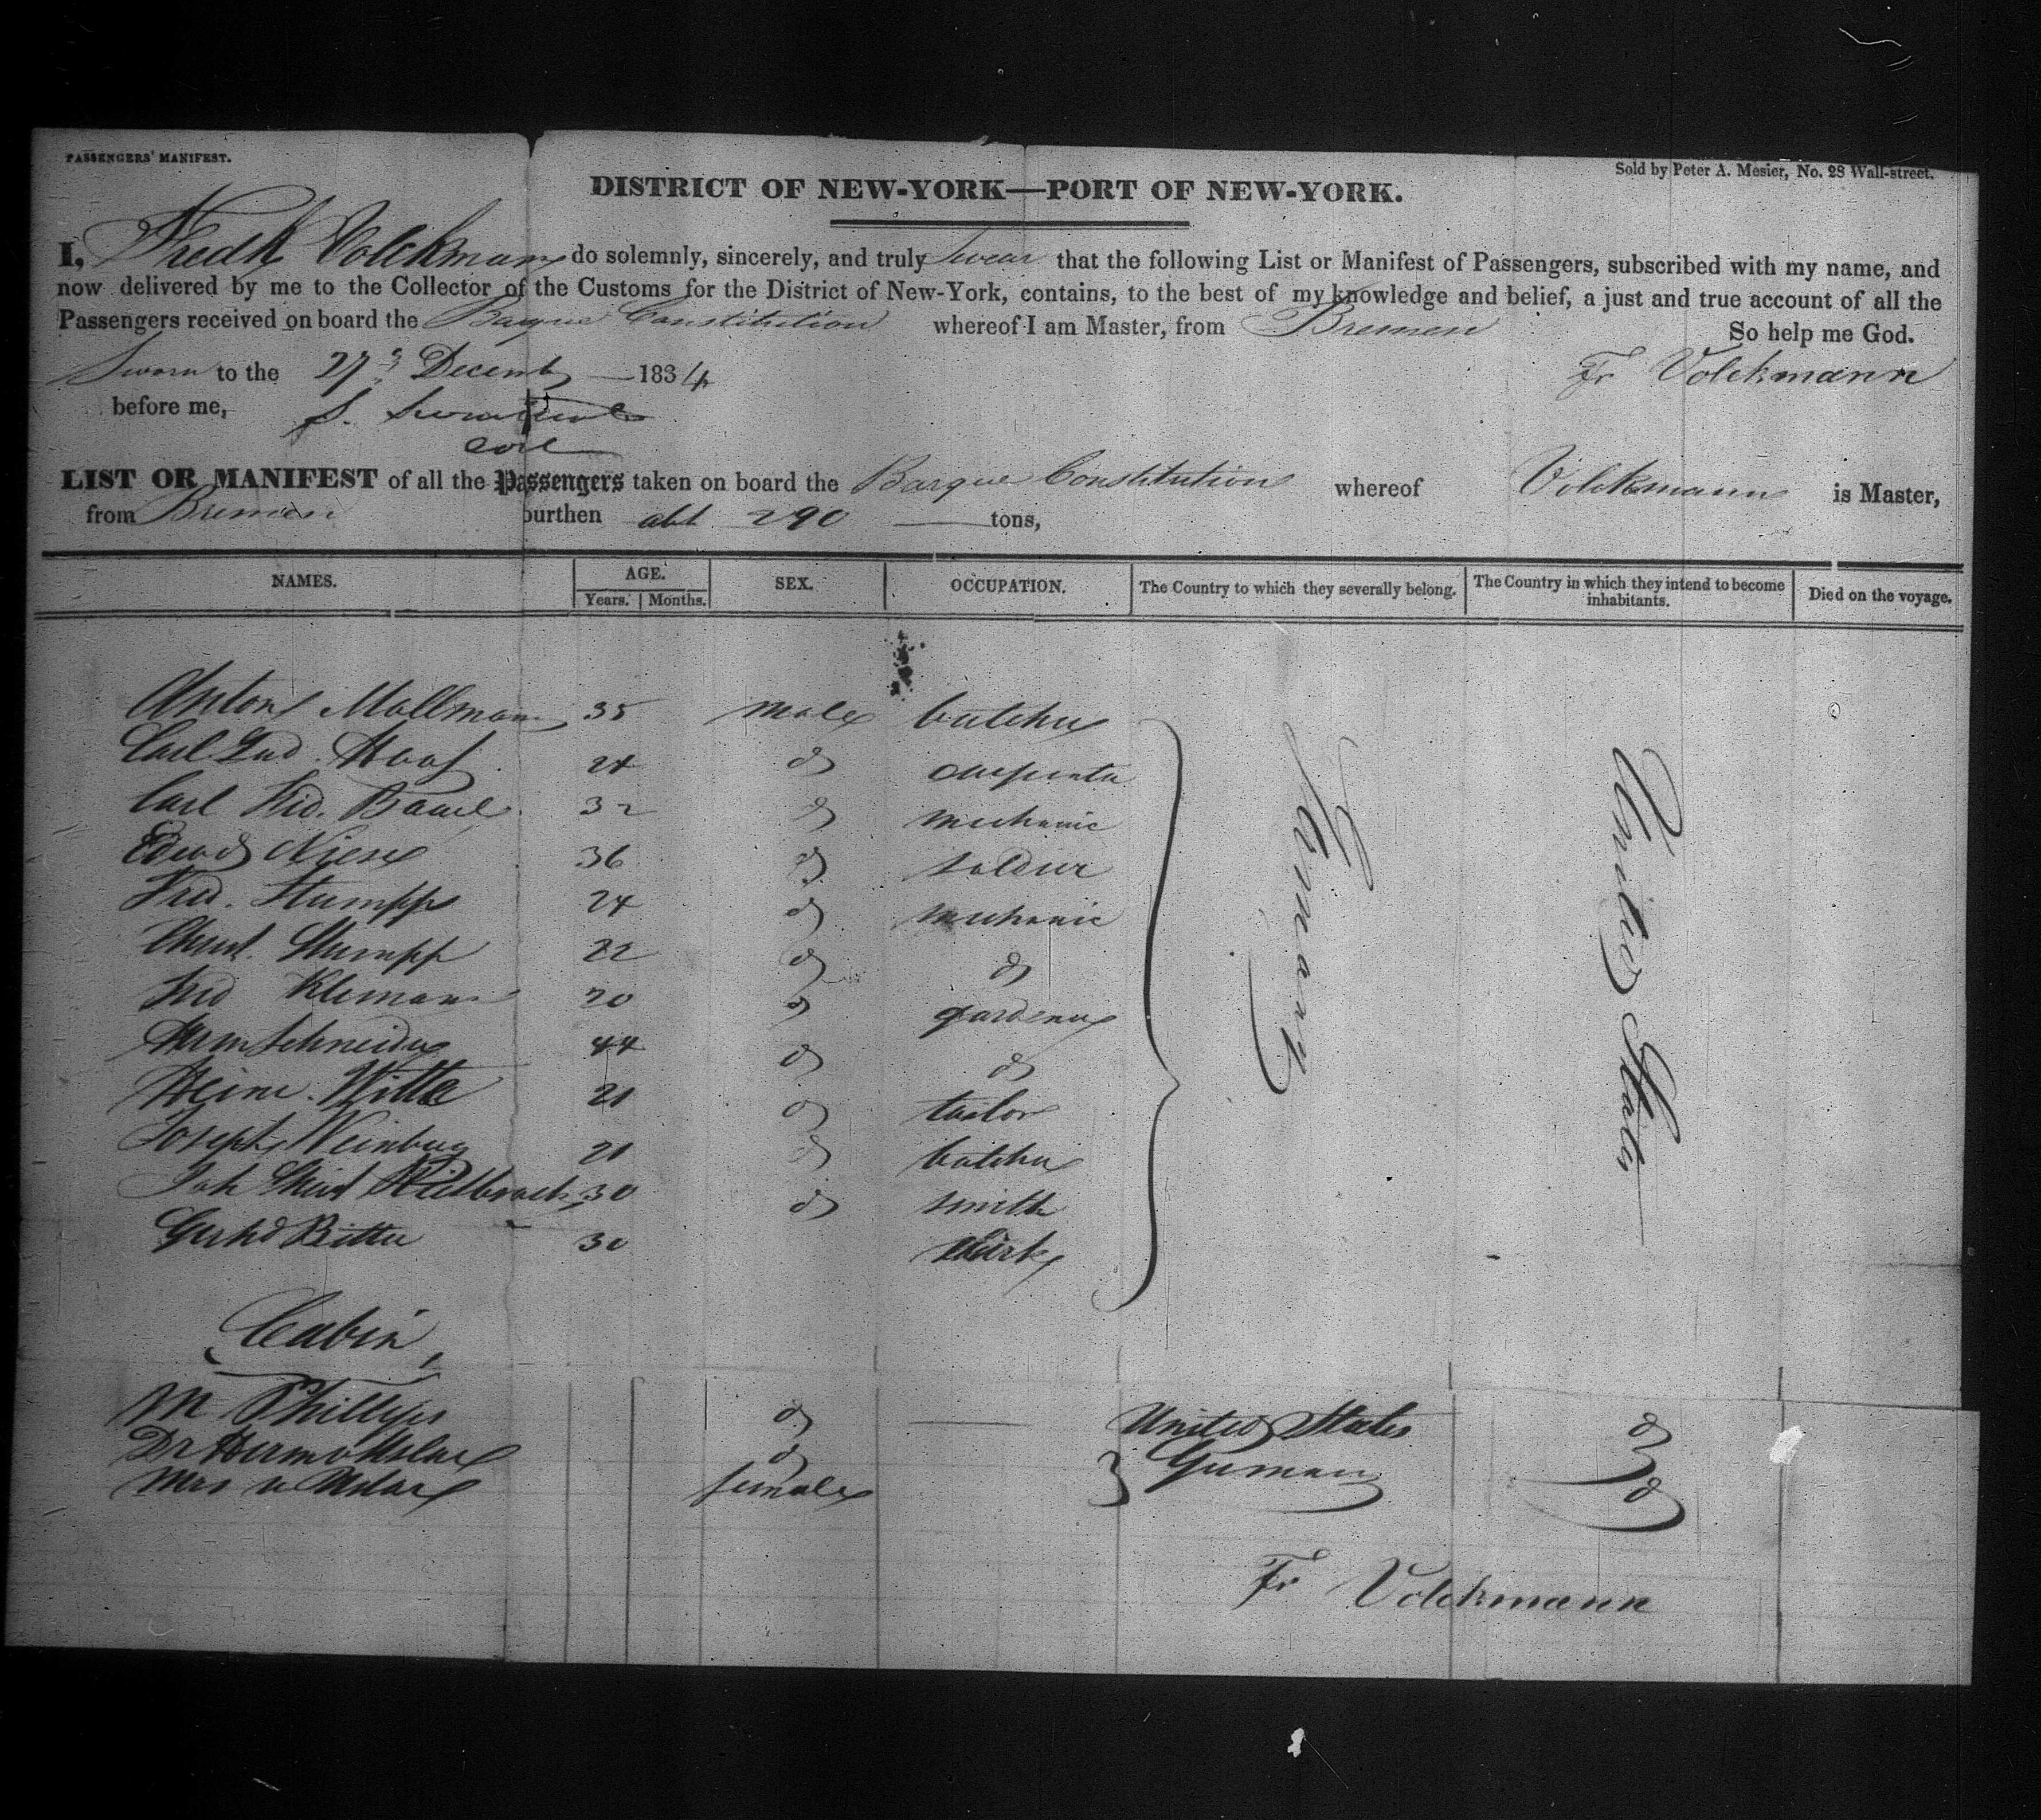 PASSENGERS' MANIFEST.
Sold by Peter A. Mesier, No. 28 Wall-street.
DISTRICT OF NEW-YORK—PORT OF NEW-YORK.
I, Fredk Volckmann do solemnly, sincerely, and truly swear that the following List or Manifest of Passengers, subscribed with my name, and
now delivered by me to the Collector of the Customs for the District of New-York, contains, to the best of my knowledge and belief, a just and true account of all the
Passengers received on board the Barque Constitution whereof I am Master, from Bremen So help me God.
Sworn to the 27 Decemb 1834 Fr Volckmann
before me, S.
LIST OR MANIFEST of all the Passengers taken on board the Barque Constitution whereof Volckmann is Master,
from Bremen burthen abt 290 tons,
NAMES. AGE. Years. Months. SEX. OCCUPATION. The Country to which they severally belong. The Country in which they intend to become inhabitants. Died on the voyage.
Anton Mallmann 35 male butcher
Carl Lud. Haaf 24 do carpenter
Carl Frid. Bauel 32 do mechanic
Edward Niese 36 do soldier
Fred. Stumpp 24 do mechanic
Christ. Stumpp 22 do do
Frid Klemann 20 do gardener
Herm Schneider 44 do do
Heinr. Witte 21 do tailor
Joseph Weinberg 21 do butcher
Joh 30 do smith
Gerhd Ritter 30 clerk
Germany
United States
Cabin
M Phillips do United States do
Dr Herm v Uslar do Germany do
Mrs v Uslar female
Fr Volckmann